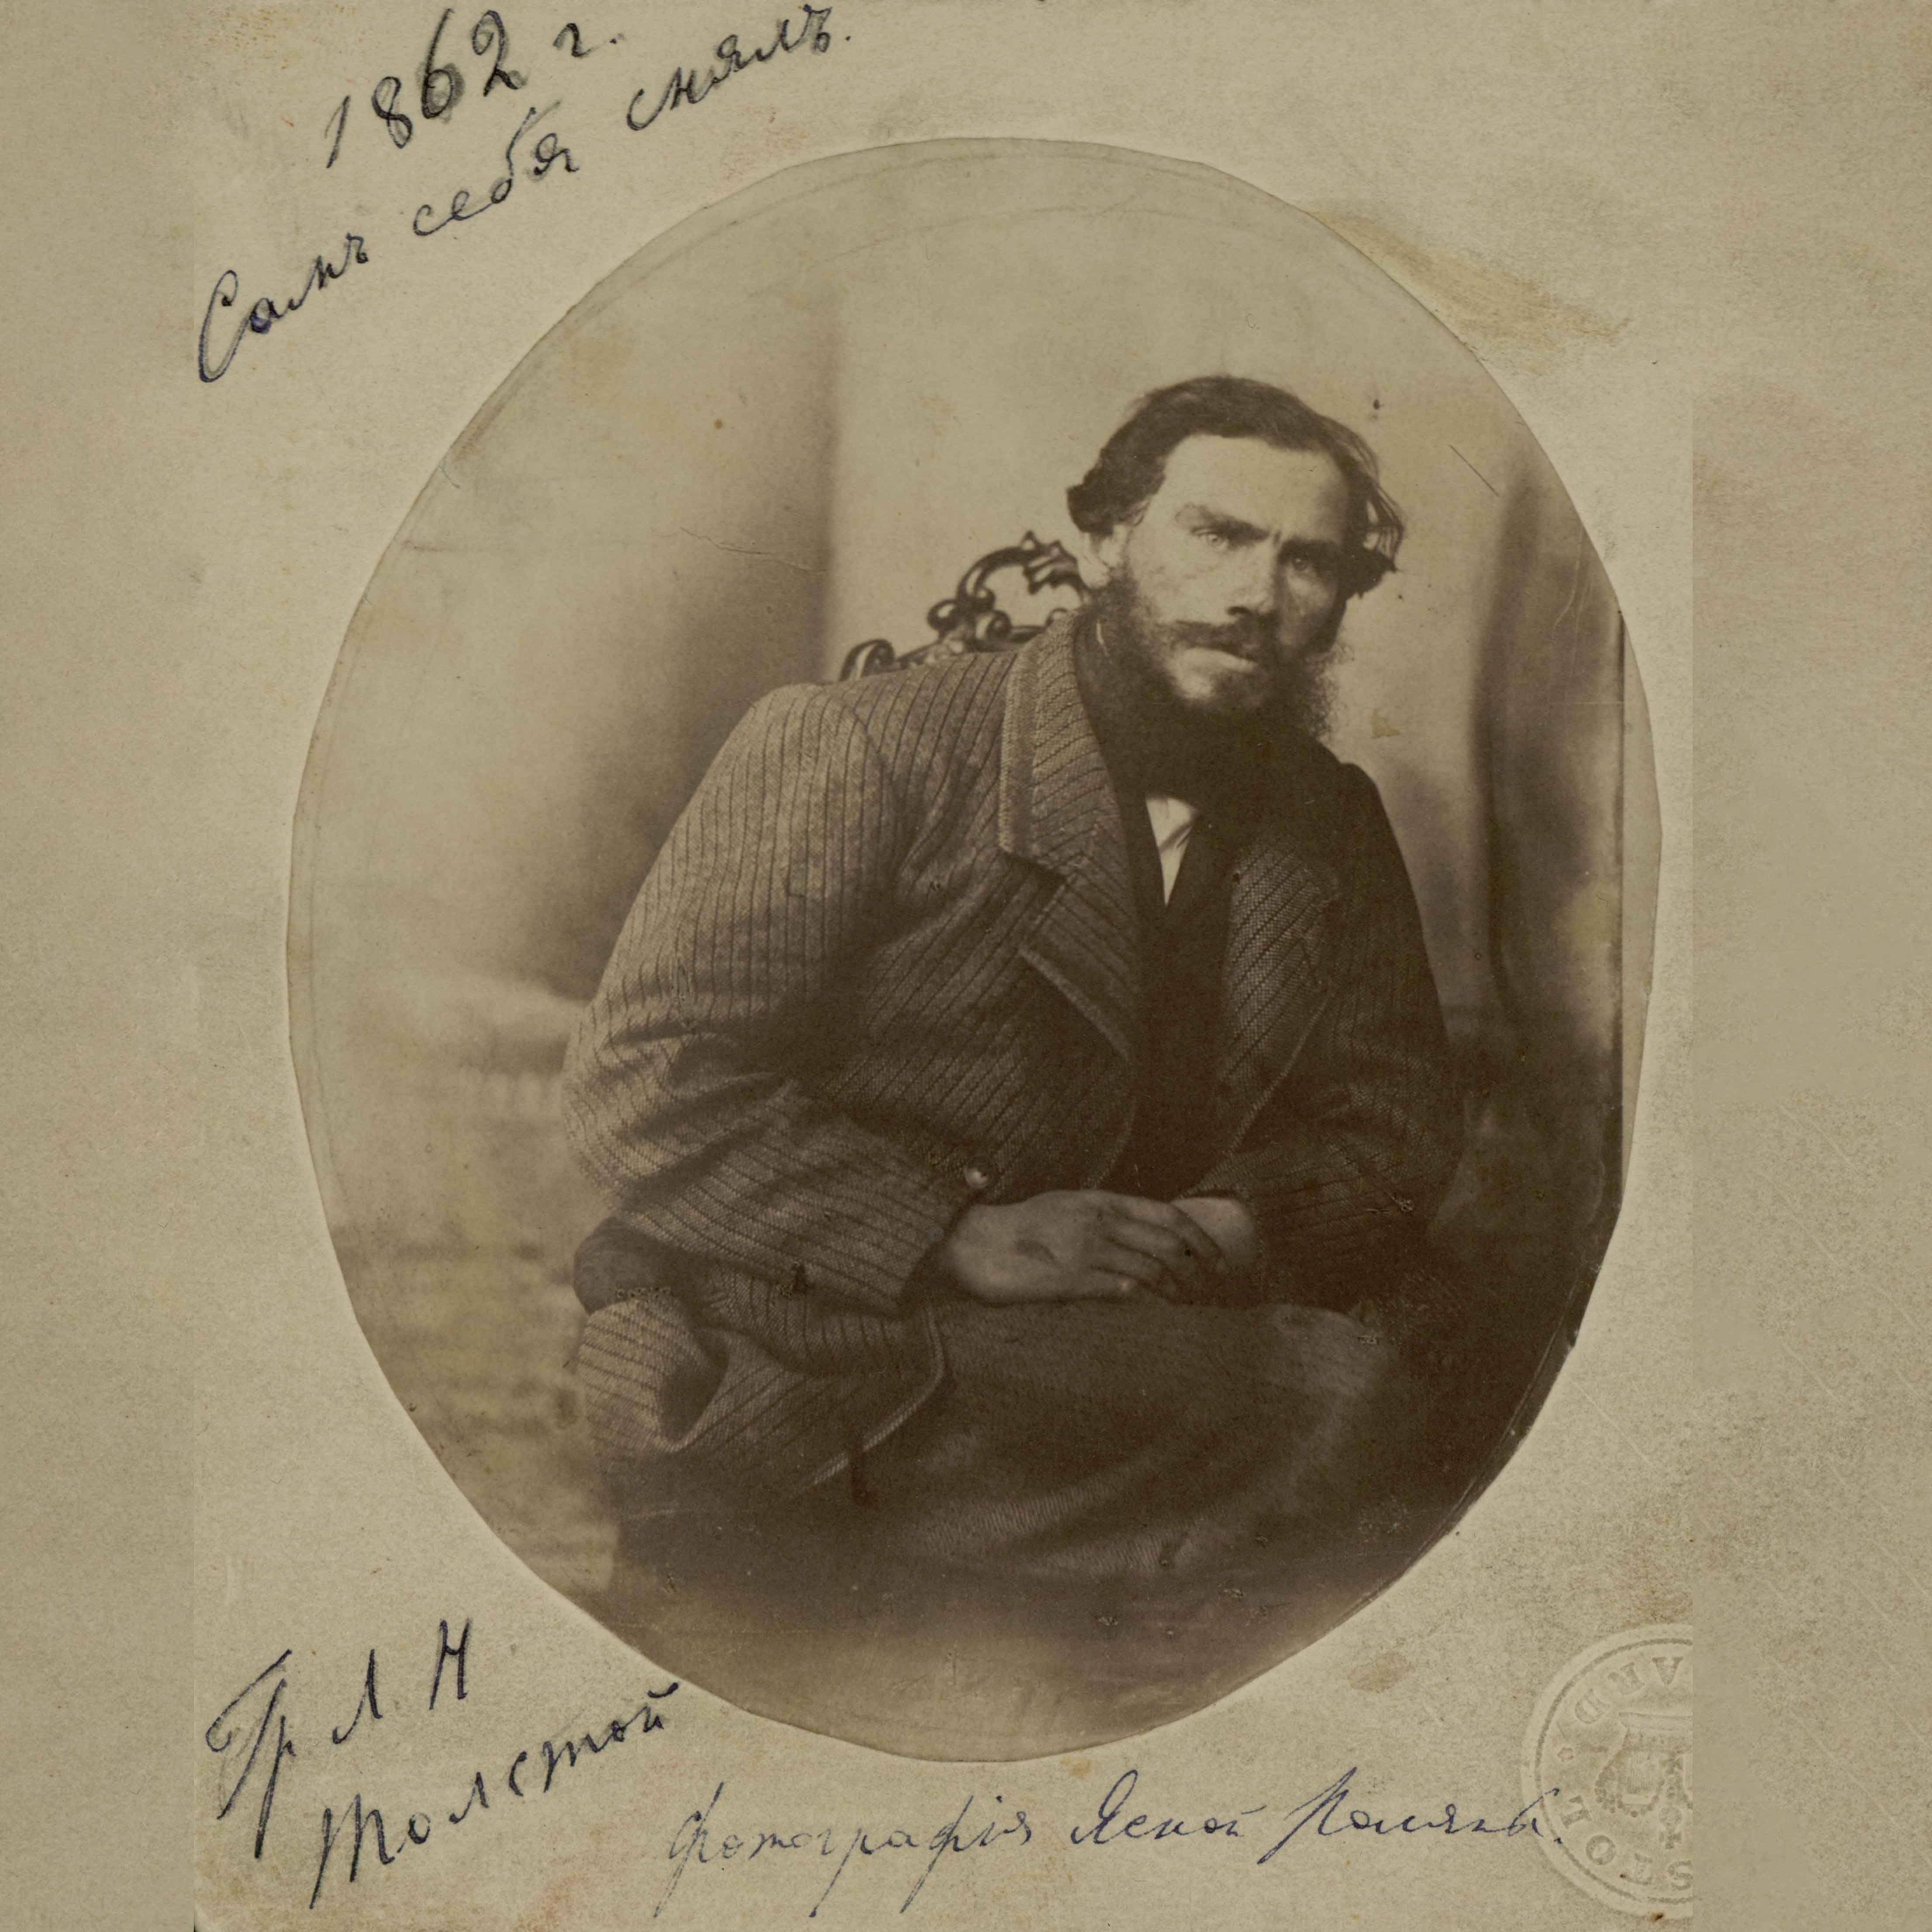 1862 г.
Самъ себя снялъ.
Гр Л Н
Толстой
Фотографія Ясной Поляны.